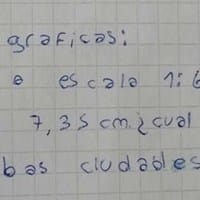 graficas:
a escala 1:6
7,35 cm ¿cual
bas ciudades